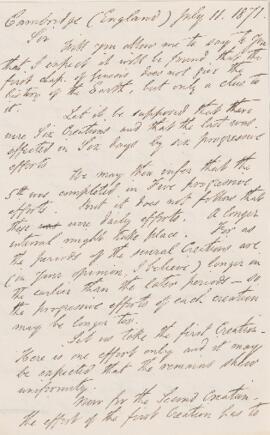 Cambridge (England) July 11. 1871.
Sir
Will you allow me to say to you
that, I expect it will be found, that the
first chap. of Genesis does not give the
history of the Earth, but only a clue to
it.
Let it be supposed that there
were Six Creations and that the last was
effected in Six days by six progressive
efforts
We may then infer that the
5th was completed in Five progressive
efforts. But it does not follow that
these were daily efforts. A longer
interval might take place. For as
the periods of the several Creations are
(in your opinion, I believe) longer in
the earlier than the later periods — so
the progressive efforts of each creation
may be longer too.
Let us take the first Creation.
Here is one effort only and it may
be expected that the remains shew
uniformity.
Now for the Second Creation.
the effort of the first Creation has to